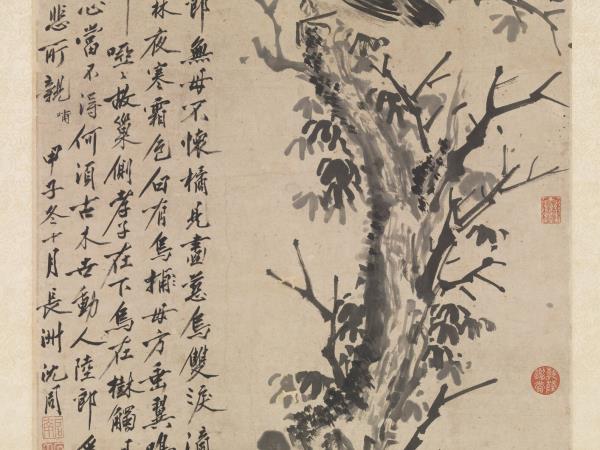 郎無母不懷橘見畫慈烏雙淚滴
林夜寒霜色白有烏哺母方垂翼鳴
啞〻故巢側孝子在下烏在樹觸
心當不得何須古木動人陸郎
悲所親甲子冬十月長洲沈周